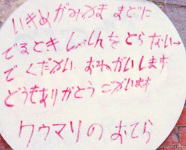 いきめがみのま まどに
でるとき しゃしんを とらない
でください おねがいします
どうもありがとう ございます
クウマリの おてら